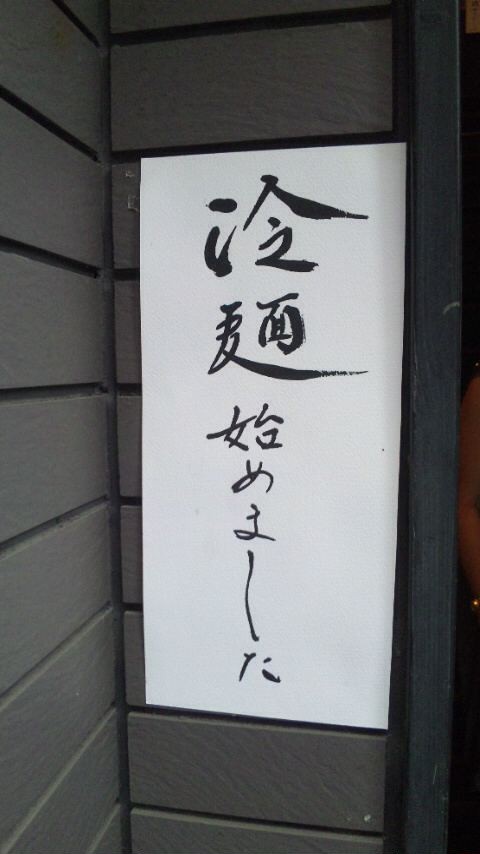 冷麺始めました